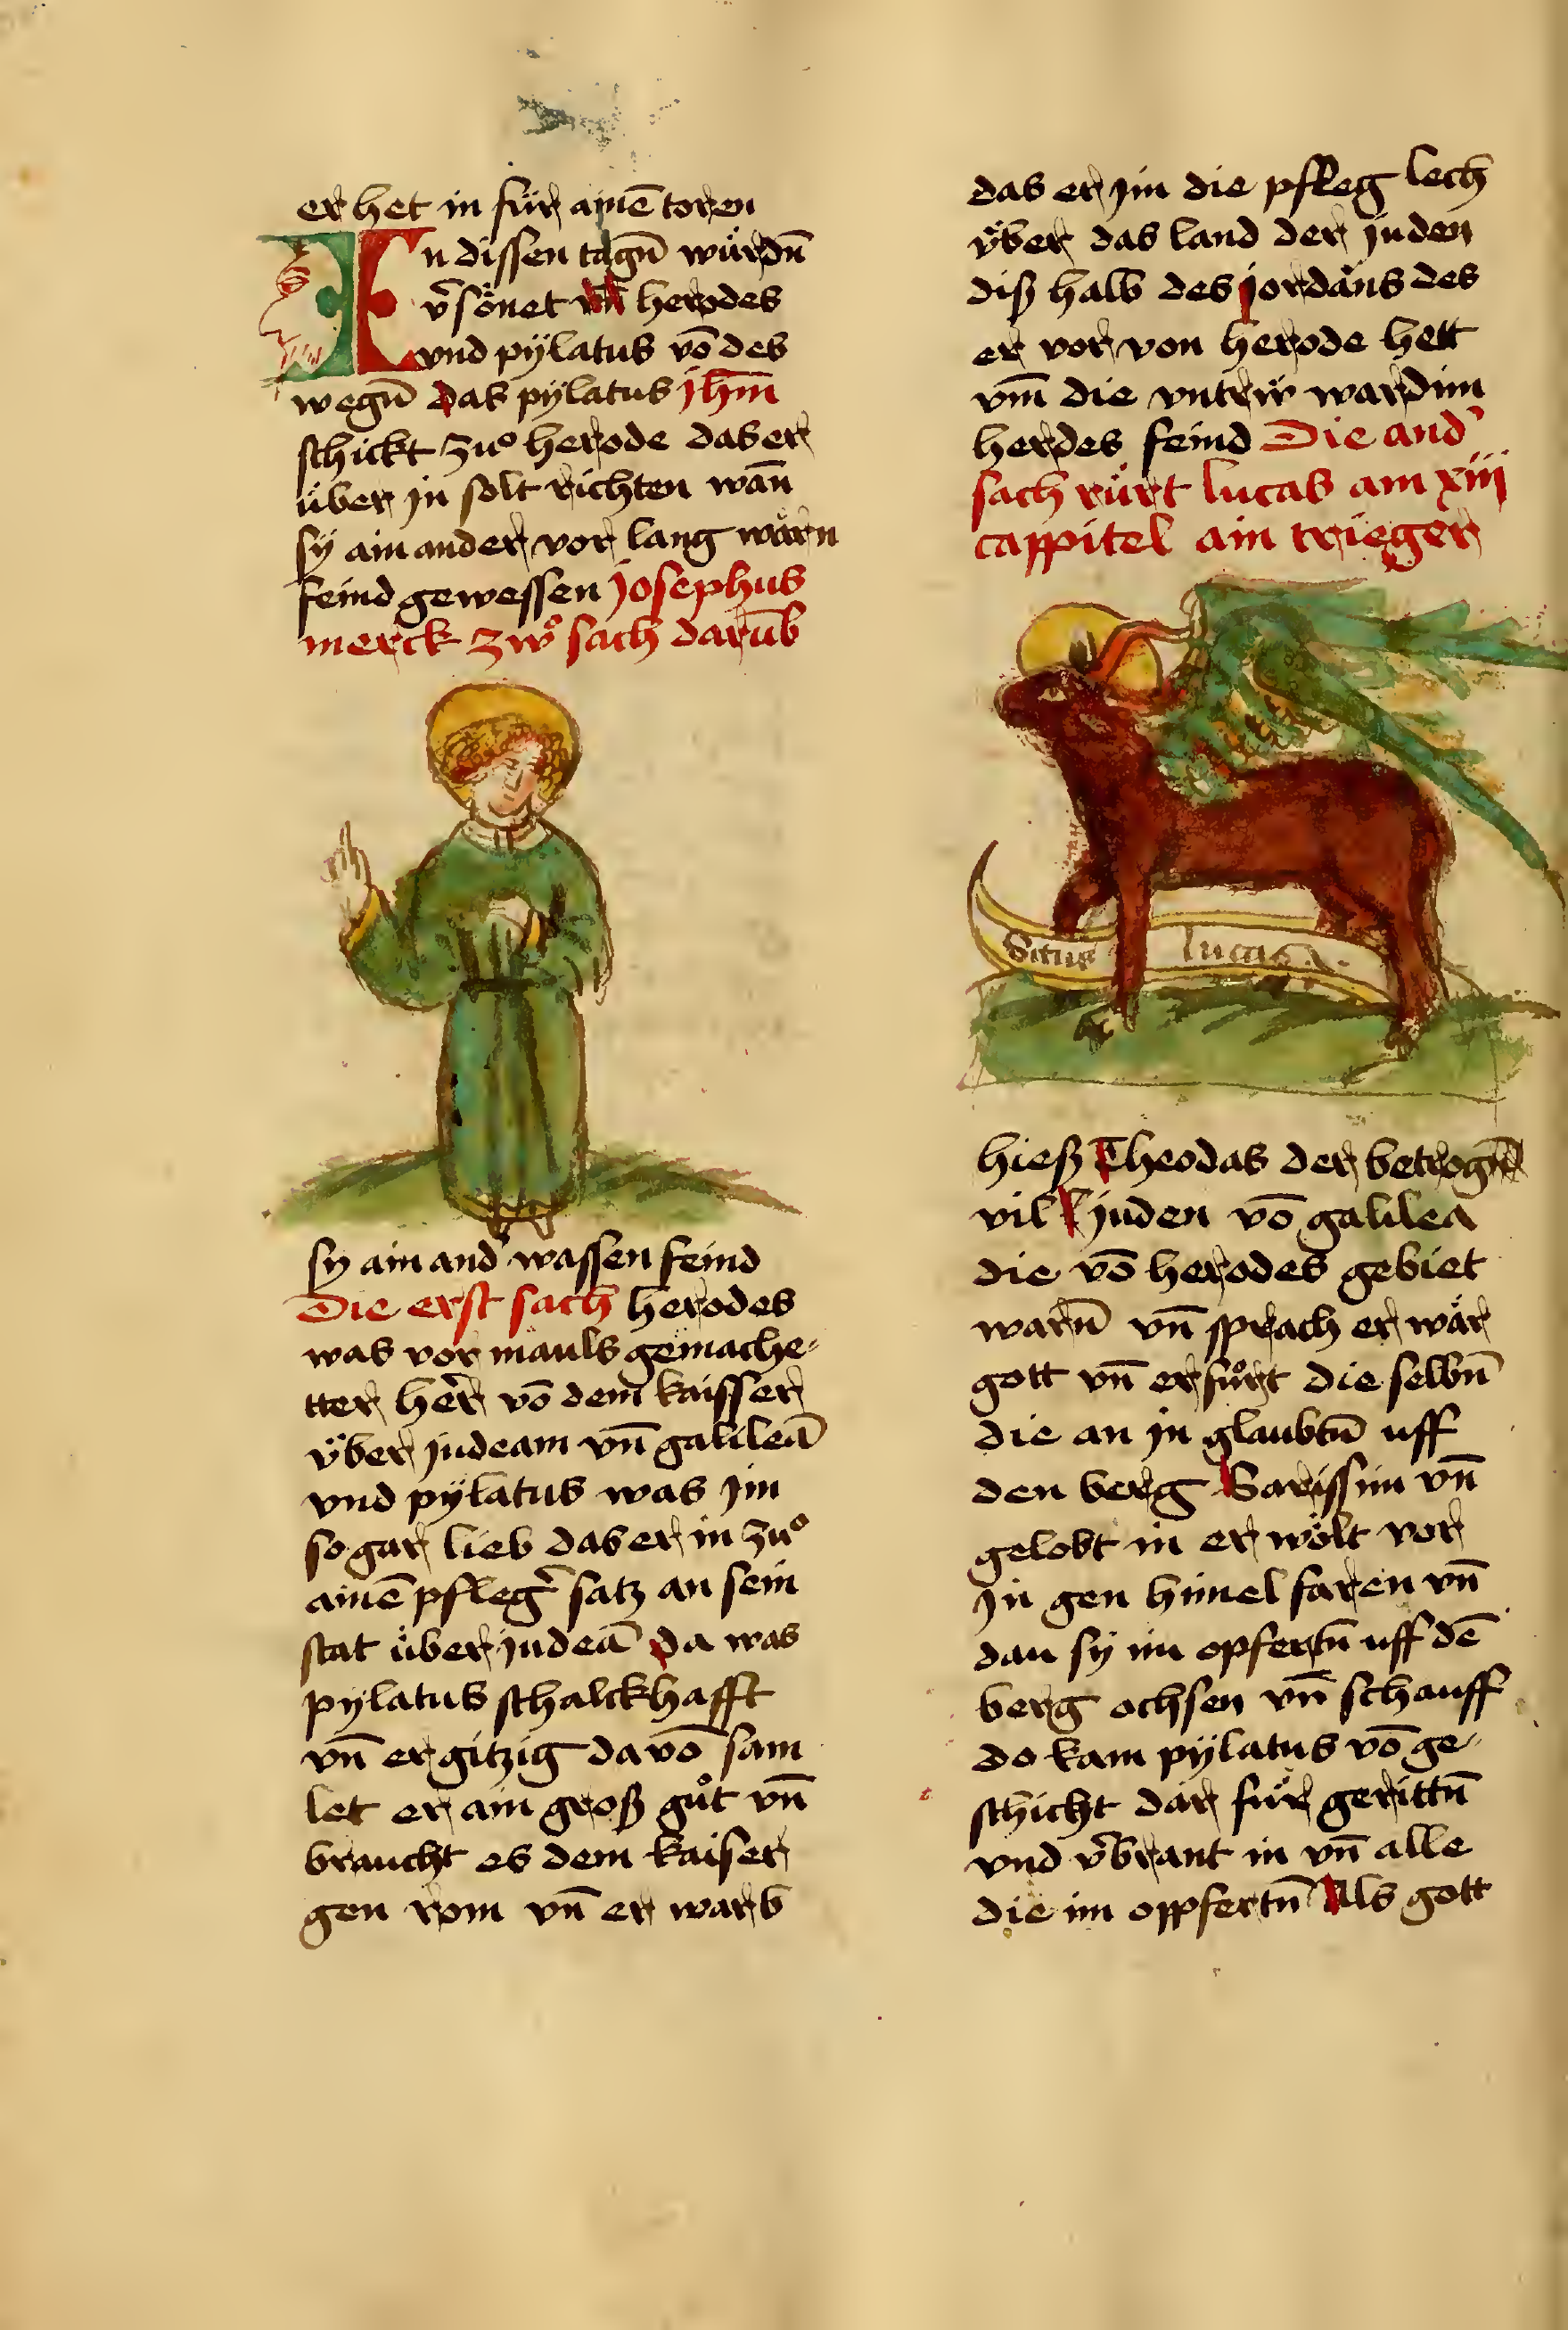 er het in für ainē toren
In dissen tagn̄ wurdn̄
v̄sönet vn̄ herodes
vnd pÿlatus vō des
wegn̄ das pÿlatus jhm̄
schickt zuͦ herode das er
über jn solt richten wan̄
sÿ ain ander vor lang wärn
feind gewessen josephus
merck zwͦ sach darūb
sy ain and' wassen feind
Die erst sach herodes
was vor mauls gemache-
tter her̄ vō dem kaisser
v̈ber judeam vn̄ galileā
vnd pÿlatus was jm
so gar lieb das er in zuͦ
ainē pfleg' satz an sein
stat über judeā da was
pÿlatus schalckhafft
vn̄ er gitzig da vō sam
let er ain groß guͦt vn̄
braucht es dem kaiser
gen rom vn̄ er warb
das er jm die pfleg lech
v̈ber das land der juden
diß halb des jordans des
er vor von herode hett
vm̄ die vntrẅ ward im
herdes feind Die and'
sach rürt lucas am xiij
cappitel ain trieger
Sctus lucas
hieß Theodas der betrogn̄
vil juden vō galilea
die vō herodes gebiet
warn̄ vn̄ sprach er wär
gott vn̄ er fuͦrt die selbn̄
die an jn glaubtn̄ uff
den berg Garissim vn̄
gelobt in er wölt vor
jn gen himel faren vn̄
dan sÿ im opfertn̄ uff dē
berg ochsen vn̄ schauff
do kam pÿlatus vō ge-
schicht dar für gerittn̄
vnd v̄brant in vn̄ alle
die im oppfertn̄ Als gott